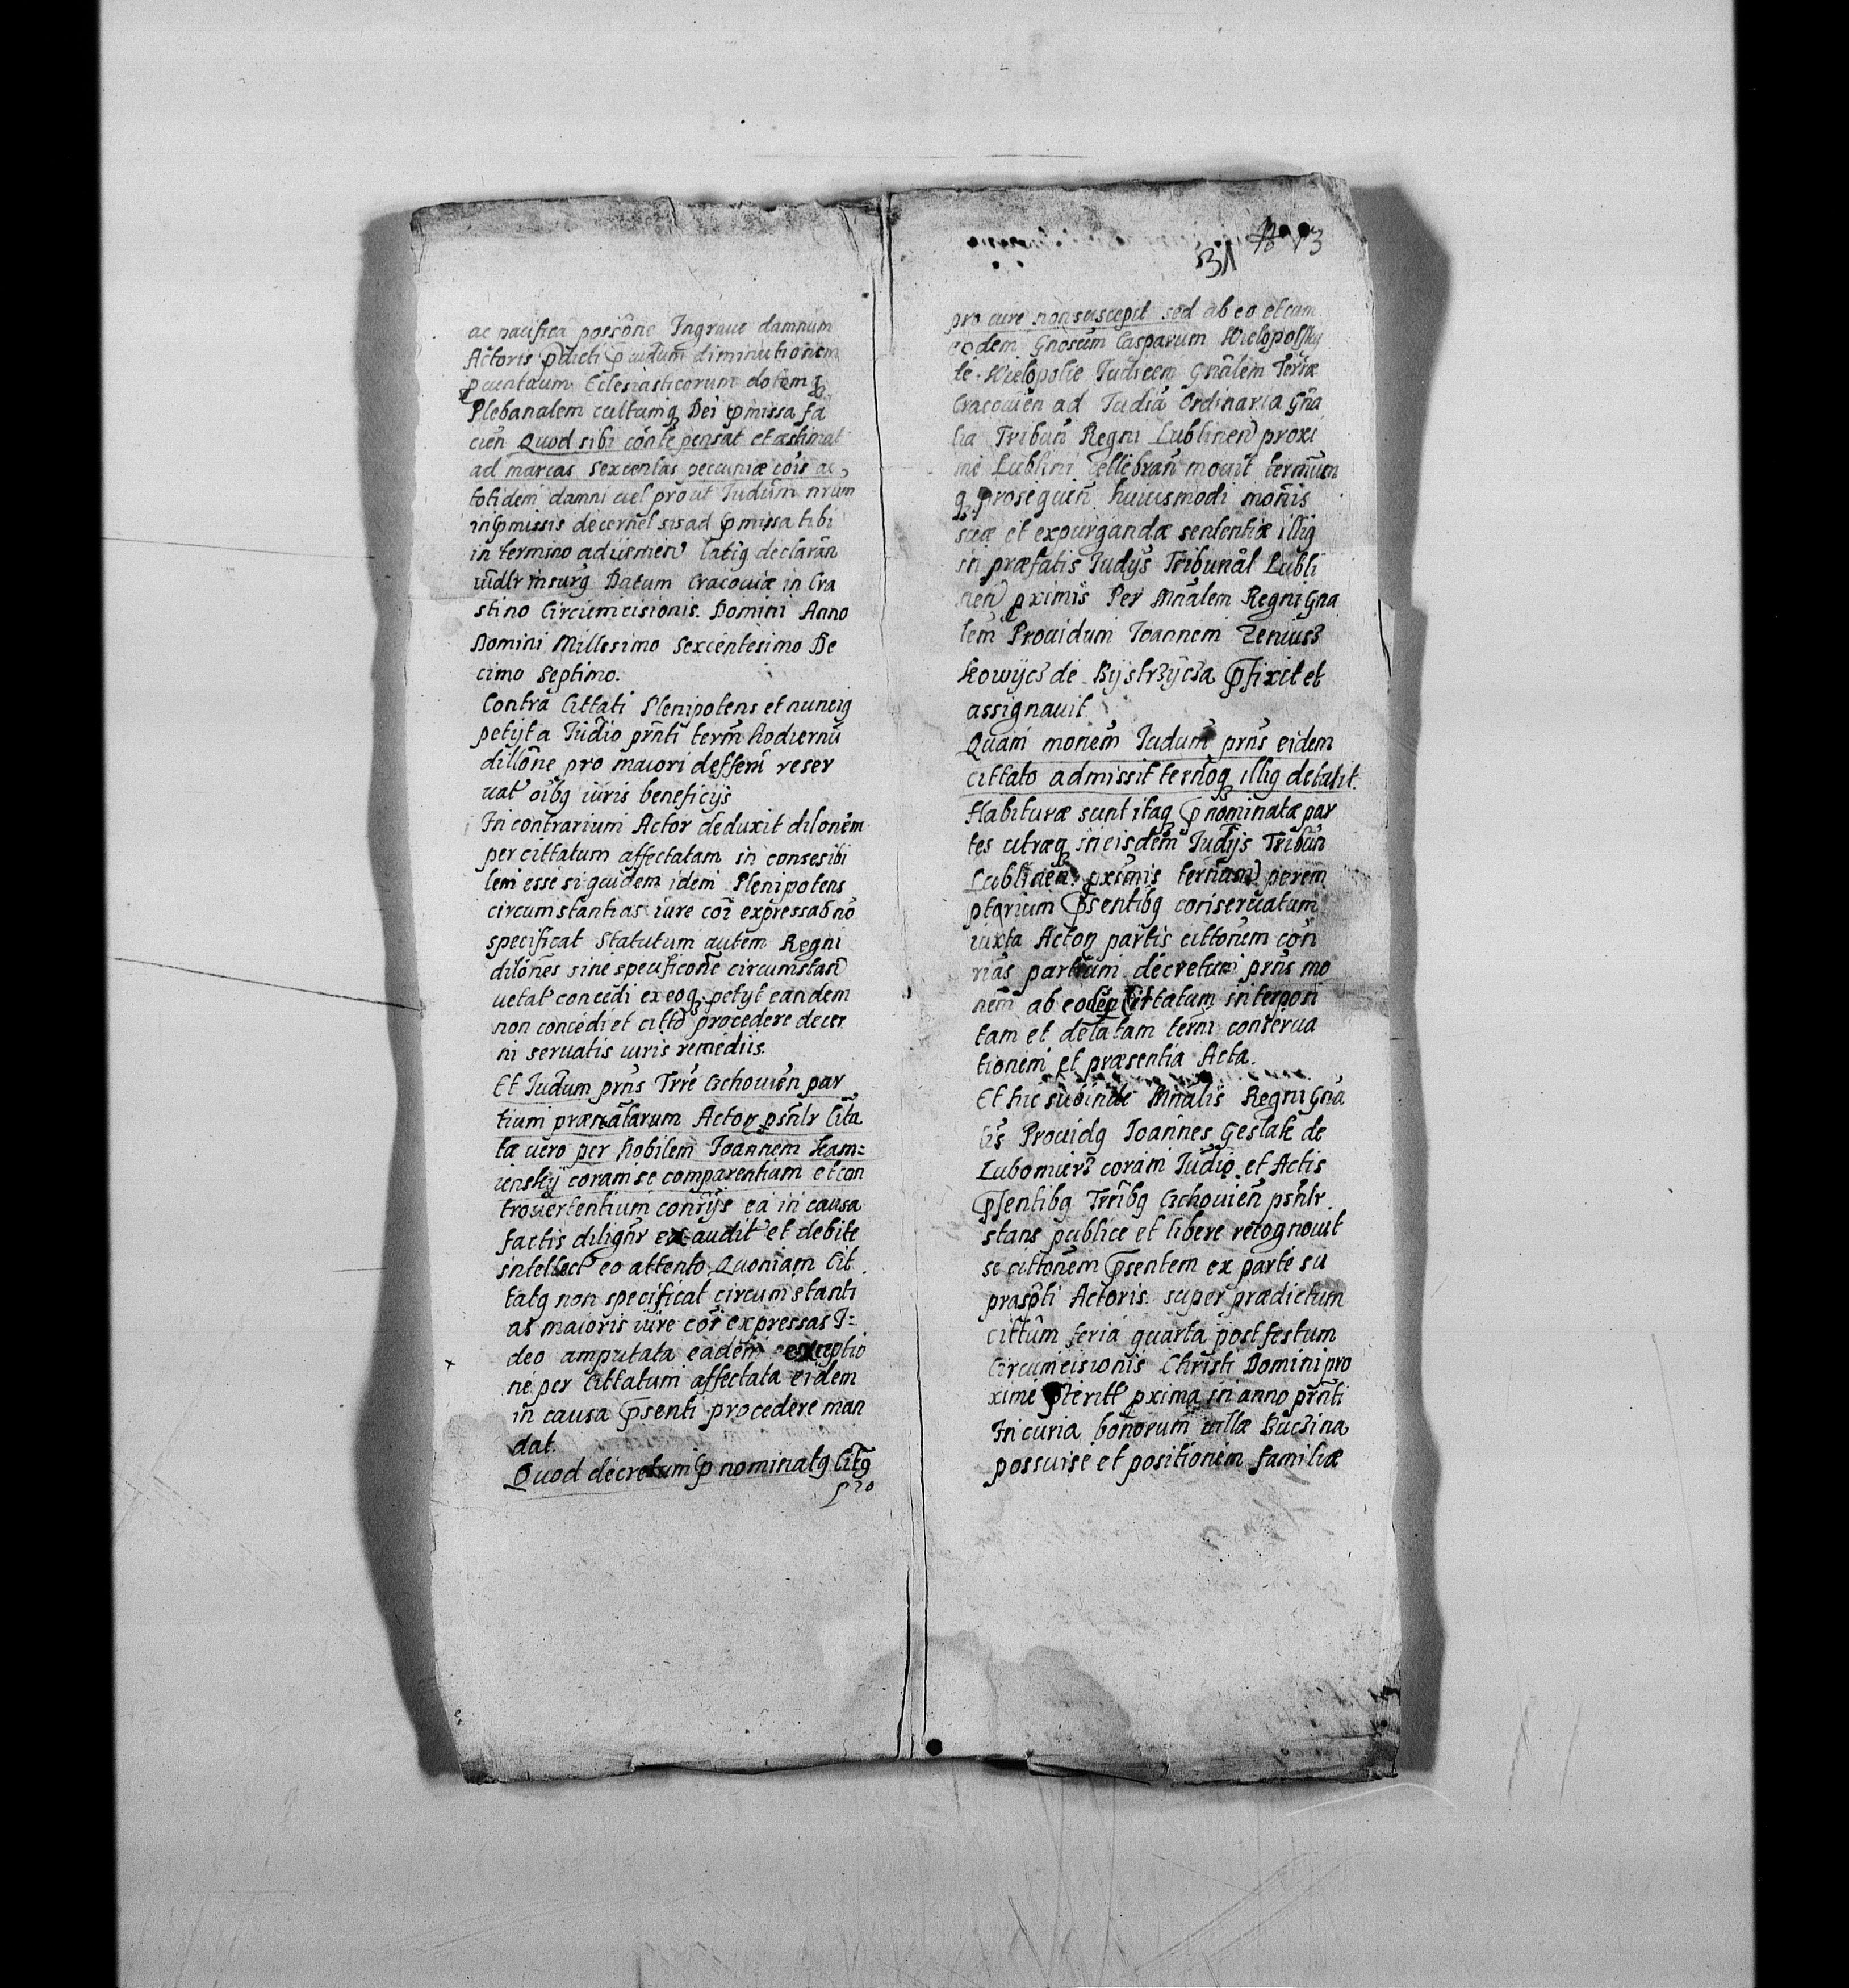 ac pacifica possõne Ingraue damnum
Actoris p̃dicti diminutionem
Eclesiasticorum dotemq
Plebanalem cultumq Dei p̃missa fa
cień Quod sibi cónte pensat et æstimat
ad marcas sexcentas pecuniæ cõis ac
totidem damni uel prout Iudũm nrũm
in p̃missis decernet sis ad p̃missa tibi
in termino latiq declarań
Datum Cracouiæ in Cra
stino Circumcisionis. Domini Anno
Domini Millesimo Sexcentesimo De
cimo Septimo.
Contrã Cittati Plenipotens et nunciq
petijt a Iudio prñti termĩ hodiernũ
dillõne pro maiori deffeñ reser
uat oĩbq iũris beneficijs
In contrarium Actor deduxit dilonẽm
per cittatum affectatam in consesibi
lem esse siquidem idem Plenipotens
circumstantias iure cõi expressas nõ
specificat Statutum autem Regni
dilõnes sine specificone circumstań
uetat concedi ex eoq petyt eandem
non concedi et citto procedere decer
ni seruatis iuris remediis.
Et Iudum prñs Trre Czchouień par
tium prænãtarum Actoꝝ psñlr Cita
tæ uero per Nobilem Ioannem Kam=
ienskÿ coram se comparentium et con
trouertentium conrijs ea in causa
factis diligñr exaudit et debite
intellect eo attento Quoniam Cit
tatq non specificat circumstanti
as maioris iure cõi expressas I=
deo amputata eadem exceptio
ne per Cittatum affectata eidem
in causa p̃senti procedere man
dat.
Quod decretum p̃nominatq Citq
pro
31 13
pro iure non suscepit sed ab eo et cum
eodem Gnosum Casparum Wielopolsky
de Wielopolie Iudicem Gnãlem Terræ
Cracouień ad Iudia Ordinaria Gña
lia Tribuń Regni Lublineń proxi
me Lublini cellebrań mouit terminum
q prosequeń huiusmodi monĩs
suæ et expurgandæ sententiæ illiq
in præfatis Iudijs Tribunãl Lubli
neń pximis Per Mnãlem Regni Gna
lem Prouidum Ioannem Zeniusz
kowijcz de Bijstrzÿcza p̃fixit et
assignauit
Quam monem̃ Iudum prñs eidem
cittato admissit terñoq illiq detulit.
Habituræ sunt itaq p̃nominatæ par
tes utræq in eisdem Iudijs Tribuń
Lublineń pximis terñum perem
ptorium p̃sentibq conseruatum
iuxta Actoꝝ partis cittonem con
rias partium decretum prñs mo
nem̃ ab eodem Cittatum interposi
tam et delatam termĩ conserua
tionem et præsentia Acta.
Et hic subinde Mnalis Regni Gña
lis Prouidq Ioannes Geslak de
Lubomierz coram Iudio et Actis
p̃sentibq Trribq Czchouień psñlr
stans publice et libere recognouit
se cittonem p̃sentem ex parte su
prasp̃ti Actoris super prædictum
cittum feria quarta post festum
Circumcisionis Christi Domini pro
xime pxima in anno prñti
In curia bonorum uillæ Buczina
possuise et positionem familiæ